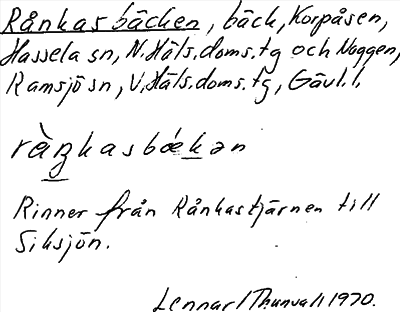 Rånkasbäcken, bäck, Korpåsen,
Hassela sn, N. Häls. doms. tg och Noggen,
Ramsjö sn, V. Häls. doms. tg, Gävl. l.
rånkasbækən
Rinner från Rånkastjärnen till
Siksjön.
Lennart Thunvall 1970.